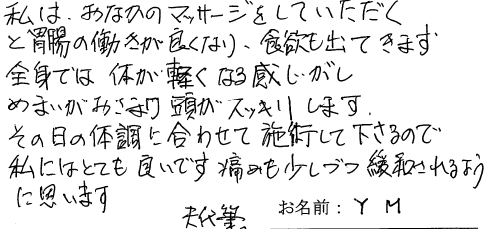 私は、おなかのマッサージをしていただく
と胃腸の働きが良くなり、食欲も出てきます
全身では 体が軽くなる感じがし
めまいがおさまり 頭がスッキリします.
その日の体調に合わせて 施術して下さるので
私にはとても良いです 痛みも少しづつ 緩和されるよう
に思います
代筆。 お名前: Y M